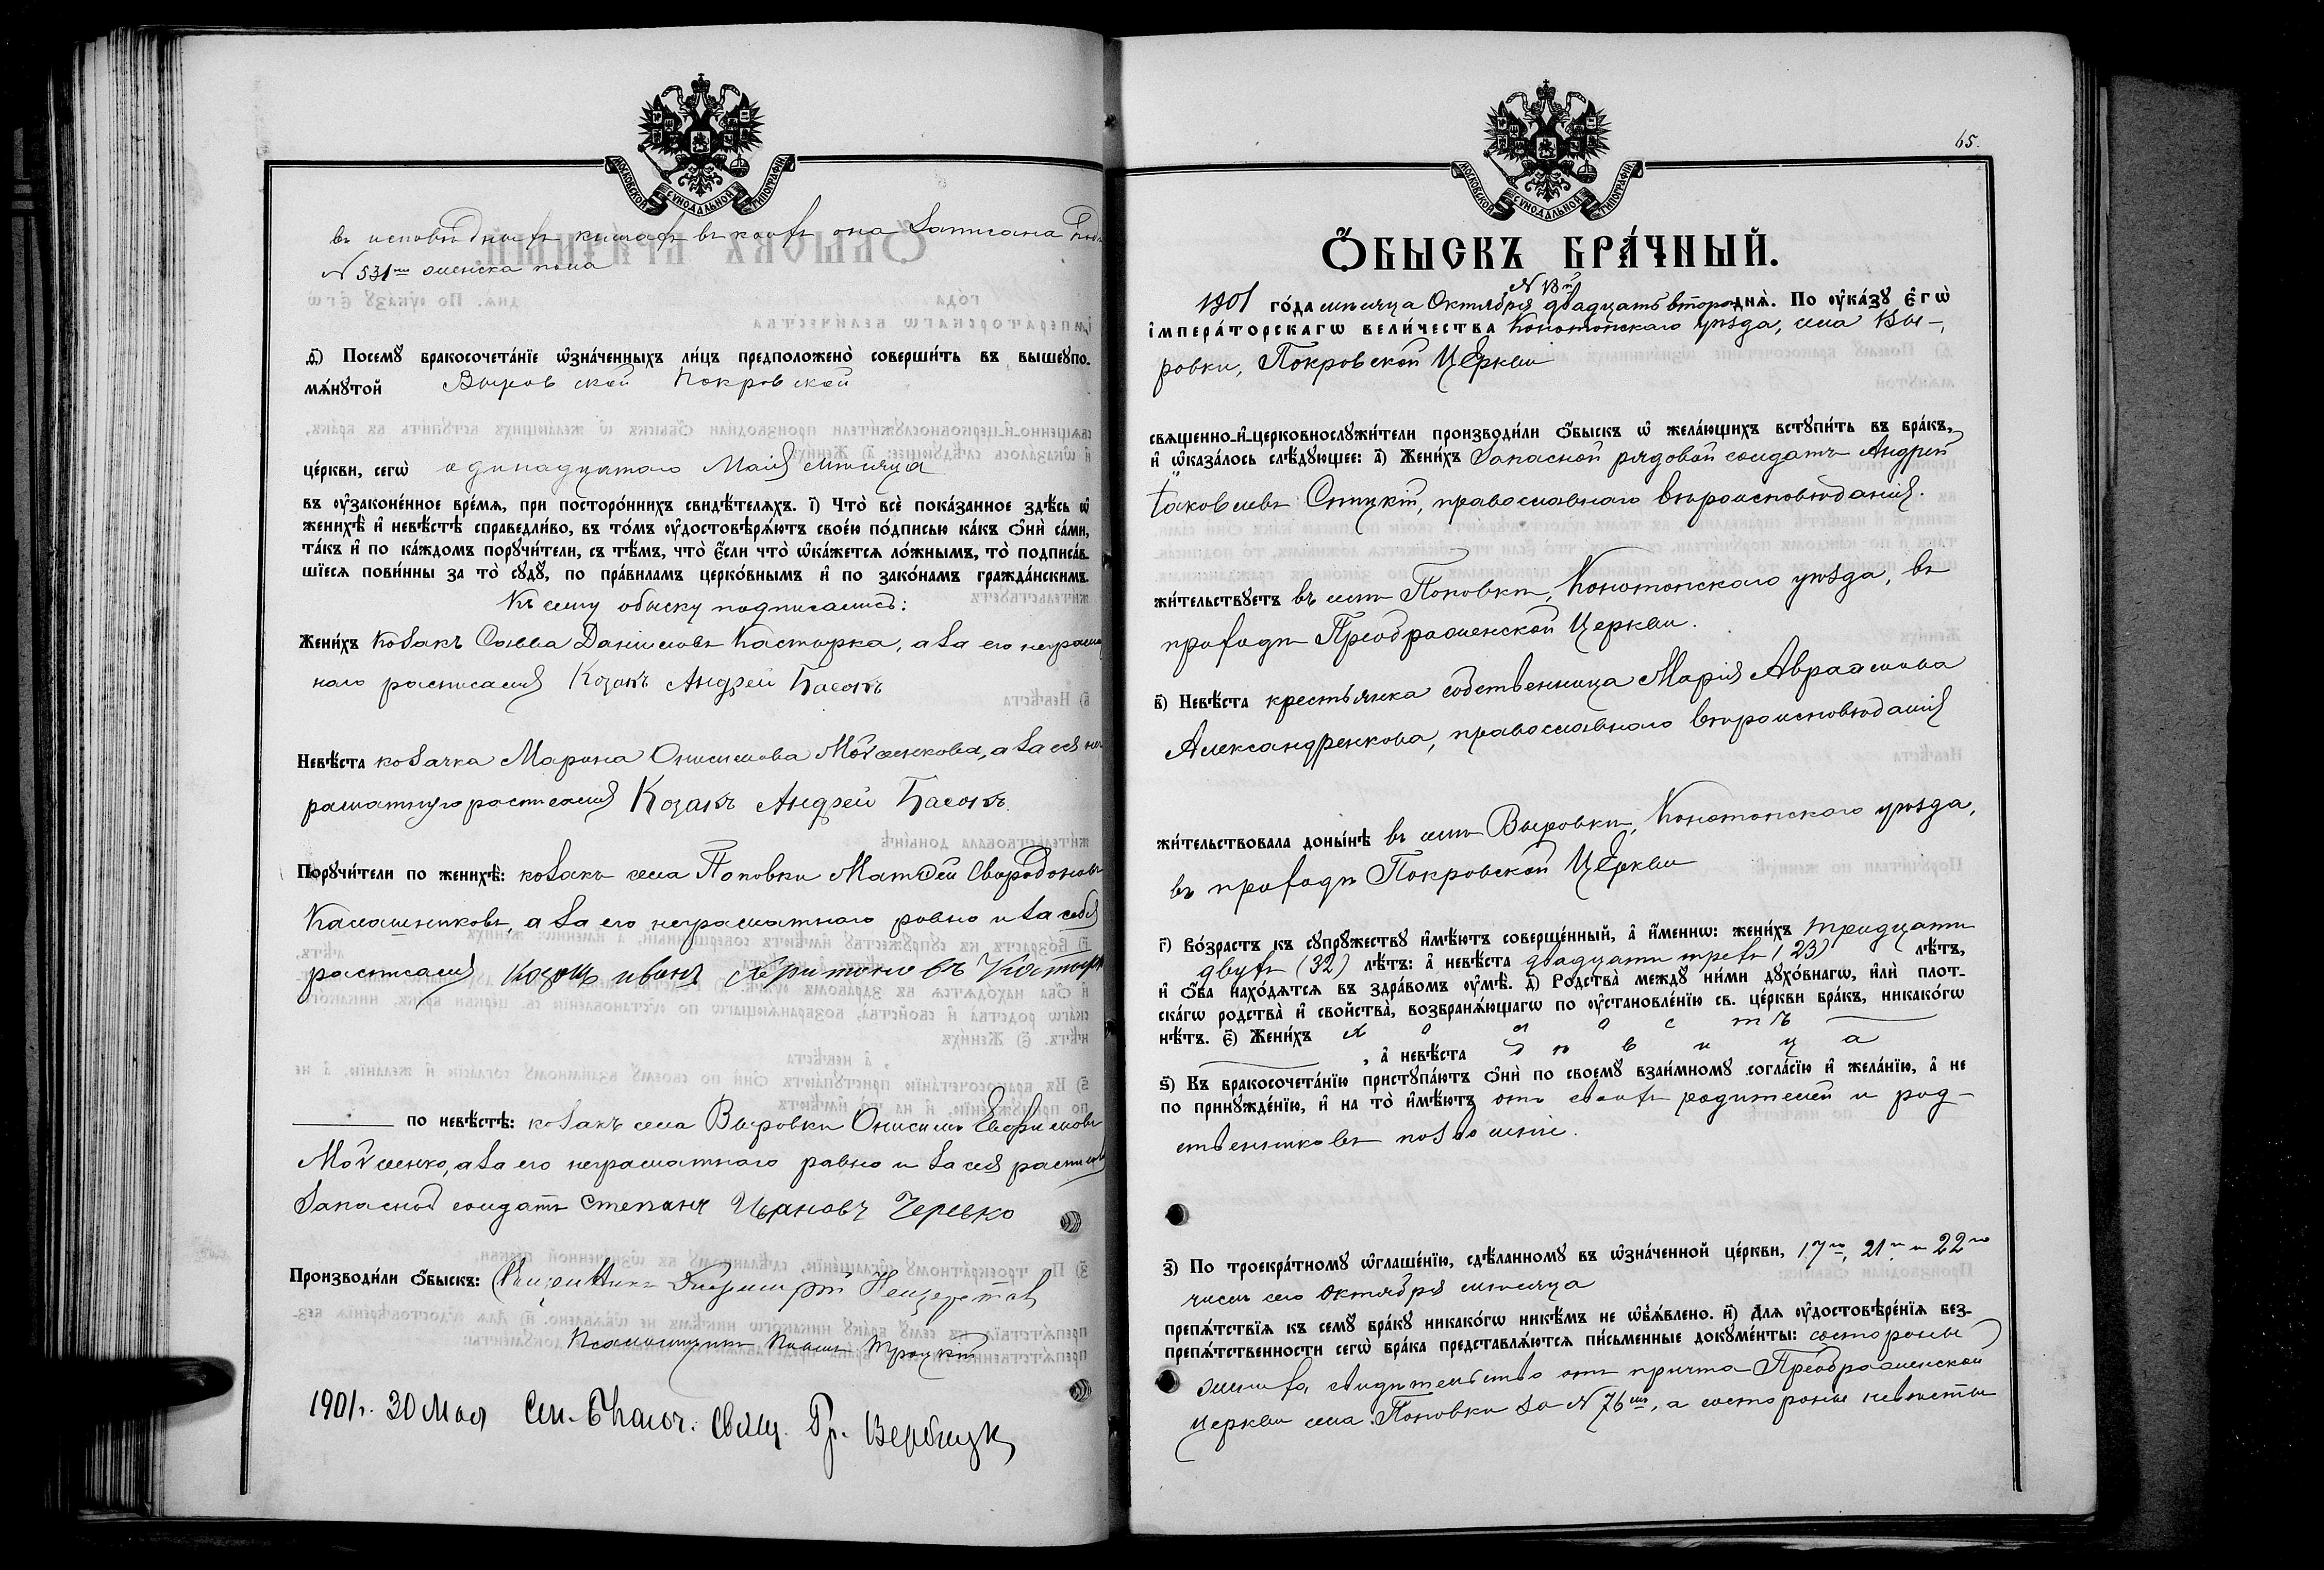 МОСКОВСКОЙ СѴНОДАЛЬНОЙ ТИПОГРАФІИ
въ исповѣдныхъ книгахъ въ коихъ она записана подъ
№ 531мъ женска пола
д҃) Посемꙋ̀ бракосочета́нїе ѡ҆зна́ченныхъ ли́цъ предположено̀ соверши́ть въ вышеꙋпо-
мѧ́нꙋтой Выровской Покровской
це́ркви, сегѡ̀ одинадцатого Маія мѣсяца
въ ᲂу҆законе́нное вре́мѧ, при посторо́ннихъ свидѣ́телѧхъ. і҃) Что̀ всѐ пока́занное здѣ́сь ѡ҆
женихѣ̀ и҆ невѣ́стѣ справедли́во, въ то́мъ ᲂу҆достовѣрѧ́ютъ свое́ю по́дписью ка́къ ѻ҆нѝ са́ми,
та́къ и҆ по ка́ждомъ порꙋчи́тели, съ тѣ́мъ, что̀ є҆́сли что̀ ѡ҆ка́жетсѧ ло́жнымъ, то̀ подписа́в-
шїесѧ пови́нны за то̀ сꙋдꙋ̀, по пра́виламъ церко́внымъ и҆ по зако́намъ гражда́нскимъ.
Къ сему обыску подписались:
Жени́хъ козакъ Савва Даниловъ Костырка, а за его неграмот
наго расписался Козакъ Андрей Басокъ
Невѣ́ста козачка Марина Онисимова Мойсенкова, а за нея нег
рамотную расписался Козакъ Андрей Басокъ
Порꙋчи́тели по женихѣ̀: козакъ села Поповки Матѳей Спиридоновъ
Калашниковъ, а за его неграмотнаго равно и за себя
расписался козакъ иванъ Харитоновъ
по невѣ́стѣ: козакъ села Выровки Онисимъ Евфимовъ
Мойсенко, а за его неграмотнаго равно и за себя расписался
запасной солдатъ Степанъ Ивановъ Черевко
Производи́ли ѻ҆́быскъ: Священникъ
Псаломщикъ Павелъ Троцкій
1901 г. 30 Мая Свящ. Гр. Вербицк
65.
МОСКОВСКОЙ СѴНОДАЛЬНОЙ ТИПОГРАФІИ
Ѻ҆́БЫСКЪ БРА́ЧНЫЙ.
№ 13й
1901 го́да мѣсяца Октября двадцать второго днѧ̀. По ᲂу҆ка́зꙋ є҆гѡ̀
і҆мпера́торскагѡ вели́чества Конотопскаго уѣзда, села Вы-
ровки, Покровской Церкви
свѧщенно-и҆-церковнослꙋжи́тели производи́ли ѻ҆́быскъ ѡ҆ жела́ющихъ встꙋпи́ть въ бра́къ,
и҆ ѡ҆каза́лось слѣ́дꙋющее: а҃) Жени́хъ запасной рядовой солдатъ Андрей
Іаковлевъ Сницкій, православнаго вѣроисповѣданія.
жи́тельствꙋетъ въ селѣ Поповкѣ, Конотопскаго уѣзда, въ
приходѣ Преображенской Церкви.
в҃) Невѣ́ста крестьянка собственница Марія Авраамова
Александренкова, православнаго вѣроисповѣданія
жи́тельствовала доны́нѣ въ селѣ Выровкѣ, Конотопскаго уѣзда,
въ приходѣ Покровской Церкви
г҃) Во́зрастъ къ сꙋпрꙋ́жествꙋ и҆мѣ́ютъ соверше́нный, а҆ и҆́менно: жени́хъ тридцати
двухъ (32) лѣ́тъ: а҆ невѣ́ста двадцати трехъ (23) лѣ́тъ,
и҆ ѻ҆́ба нахо́дѧтсѧ въ здра́вомъ ᲂу҆мѣ̀. д҃) Родства̀ междꙋ ни́ми дꙋхо́внагѡ, и҆лѝ плот-
ска́гѡ родства̀ и҆ свойства̀, возбранѧ́ющагѡ по ᲂу҆становле́нїю св. це́ркви бра́къ, никако́гѡ
нѣ́тъ. є҃) Жени́хъ холостъ
, а҆ невѣ́ста дѣвица
ѕ҃) Къ бракосочета́нїю пристꙋпа́ютъ ѻ҆нѝ по своемꙋ̀ взаи́мномꙋ согла́сїю и҆ жела́нїю, а҆ не
по принꙋжде́нїю, и҆ на то̀ и҆мѣ́ютъ отъ своихъ родителей и род-
ственниковъ позволеніе.
з҃) По троекра́тномꙋ ѡ҆глаше́нїю, сдѣ́ланномꙋ въ ѡ҆зна́ченной це́ркви, 17го, 21го и 22го
чиселъ сего Октября мѣсяца
препѧ́тствїѧ къ семꙋ̀ бра́кꙋ никако́гѡ никѣ́мъ не ѡ҆б̾ѧ́влено. и҃) Для ᲂу҆достовѣре́нїѧ без-
препѧ́тственности сегѡ̀ бра́ка представлѧ́ютсѧ пи́сьменные докꙋме́нты: состороны
жениха, свидѣтельство отъ причта Преображенской
церкви села Поповки за № 76мъ, а состороны невѣсты